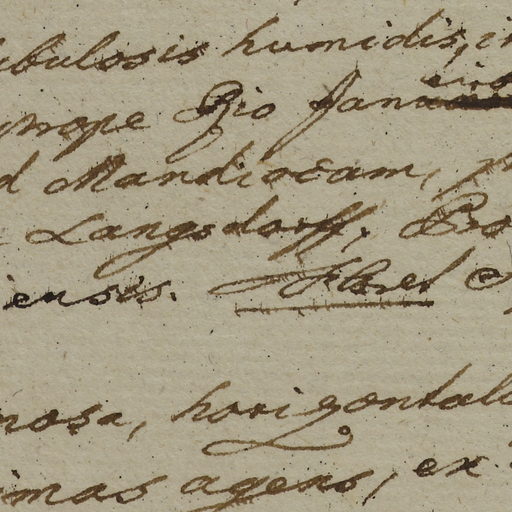 abulosis humidis, in
prope Rio Janu
eiro
d Mandiocam, p
Langsdorff, Bo
iensis. Floret
nosa, horizontal
imas agens, ex